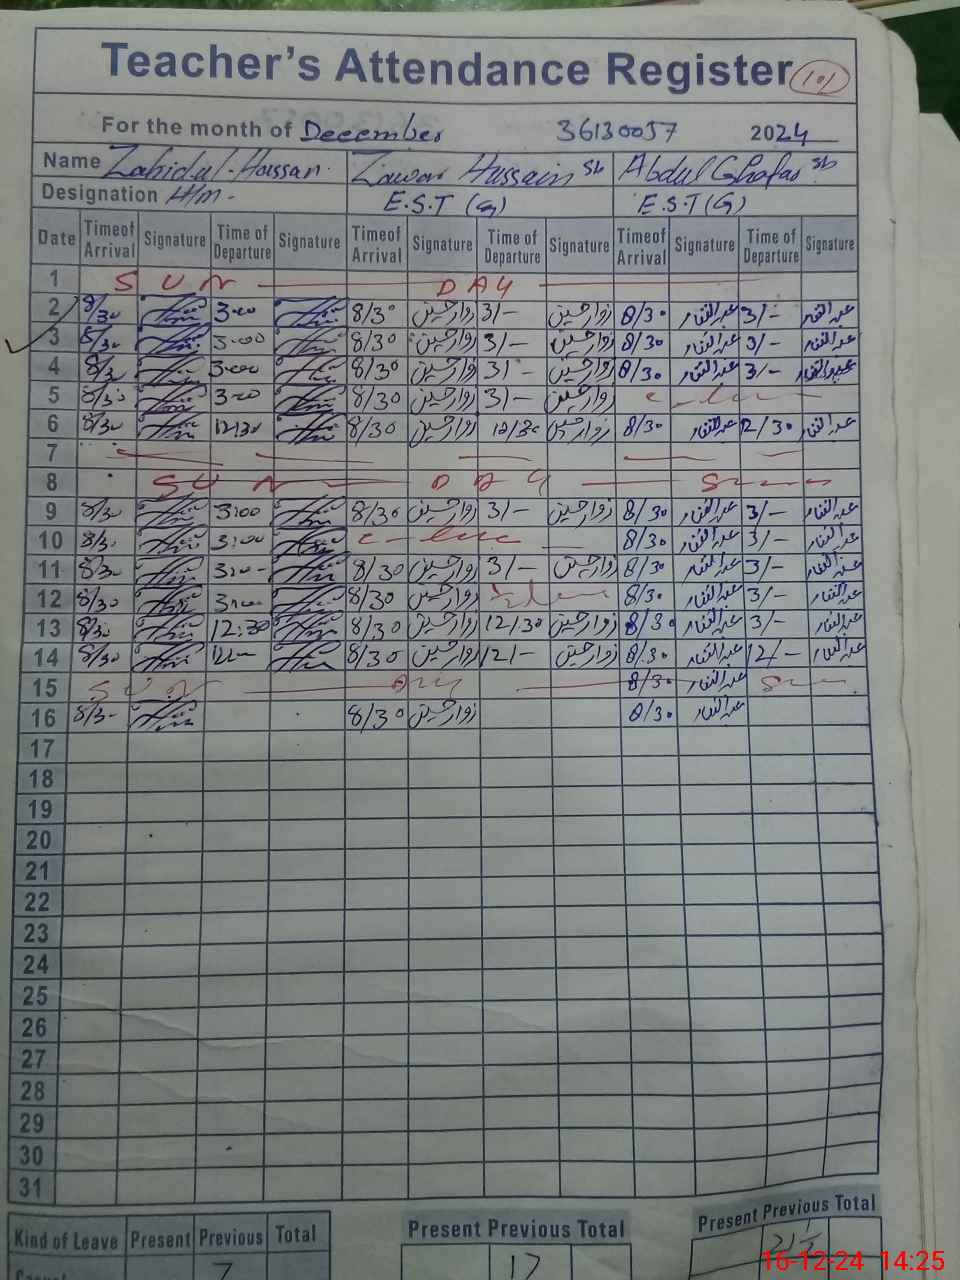 Teacher's Attendance Register 101
For the month of December 36130057 2024
Name Zahidul-Hassan Zawar Hussain sb Abdul Ghafar sb
Designation H/M- E.S.T (G) E.S.T (G)
Date Timeof Arrival Signature Time of Departure Signature Timeof Arrival Signature Time of Departure Signature Timeof Arrival Signature Time of Departure Signature
1 SUN DAY
2 8/30 3:00 8/30 زوار حسین 3/- زوار حسین 8/30 عبدالغفار 3/- عبدالغفار
3 8/30 3:00 8/30 زوار حسین 3/- زوار حسین 8/30 عبدالغفار 3/- عبدالغفار
4 8/30 3:00 8/30 زوار حسین 3/- زوار حسین 8/30 عبدالغفار 3/- عبدالغفار
5 8/30 3:00 8/30 زوار حسین 3/- زوار حسین
6 8/30 12/30 8/30 زوار حسین 12/30 زوار حسین 8/30 عبدالغفار 12/30 عبدالغفار
7
8 SUN DAY
9 8/30 3:00 8/30 زوار حسین 3/- زوار حسین 8/30 عبدالغفار 3/- عبدالغفار
10 8/30 3:00 8/30 عبدالغفار 3/- عبدالغفار
11 8/30 3:00 8/30 زوار حسین 3/- زوار حسین 8/30 عبدالغفار 3/- عبدالغفار
12 8/30 3:00 8/30 زوار حسین 8/30 عبدالغفار 3/- عبدالغفار
13 8/30 12:30 8/30 زوار حسین 12/30 زوار حسین 8/30 عبدالغفار 3/- عبدالغفار
14 8/30 12/- 8/30 زوار حسین 12/- زوار حسین 8/30 عبدالغفار 12/- عبدالغفار
15 SUN DAY 8/30 عبدالغفار
16 8/30 8/30 زوار حسین 8/30 عبدالغفار
17
18
19
20
21
22
23
24
25
26
27
28
29
30
31
Kind of Leave Present Previous Total Present Previous Total Present Previous Total
7 17 21½
16-12-24 14:25